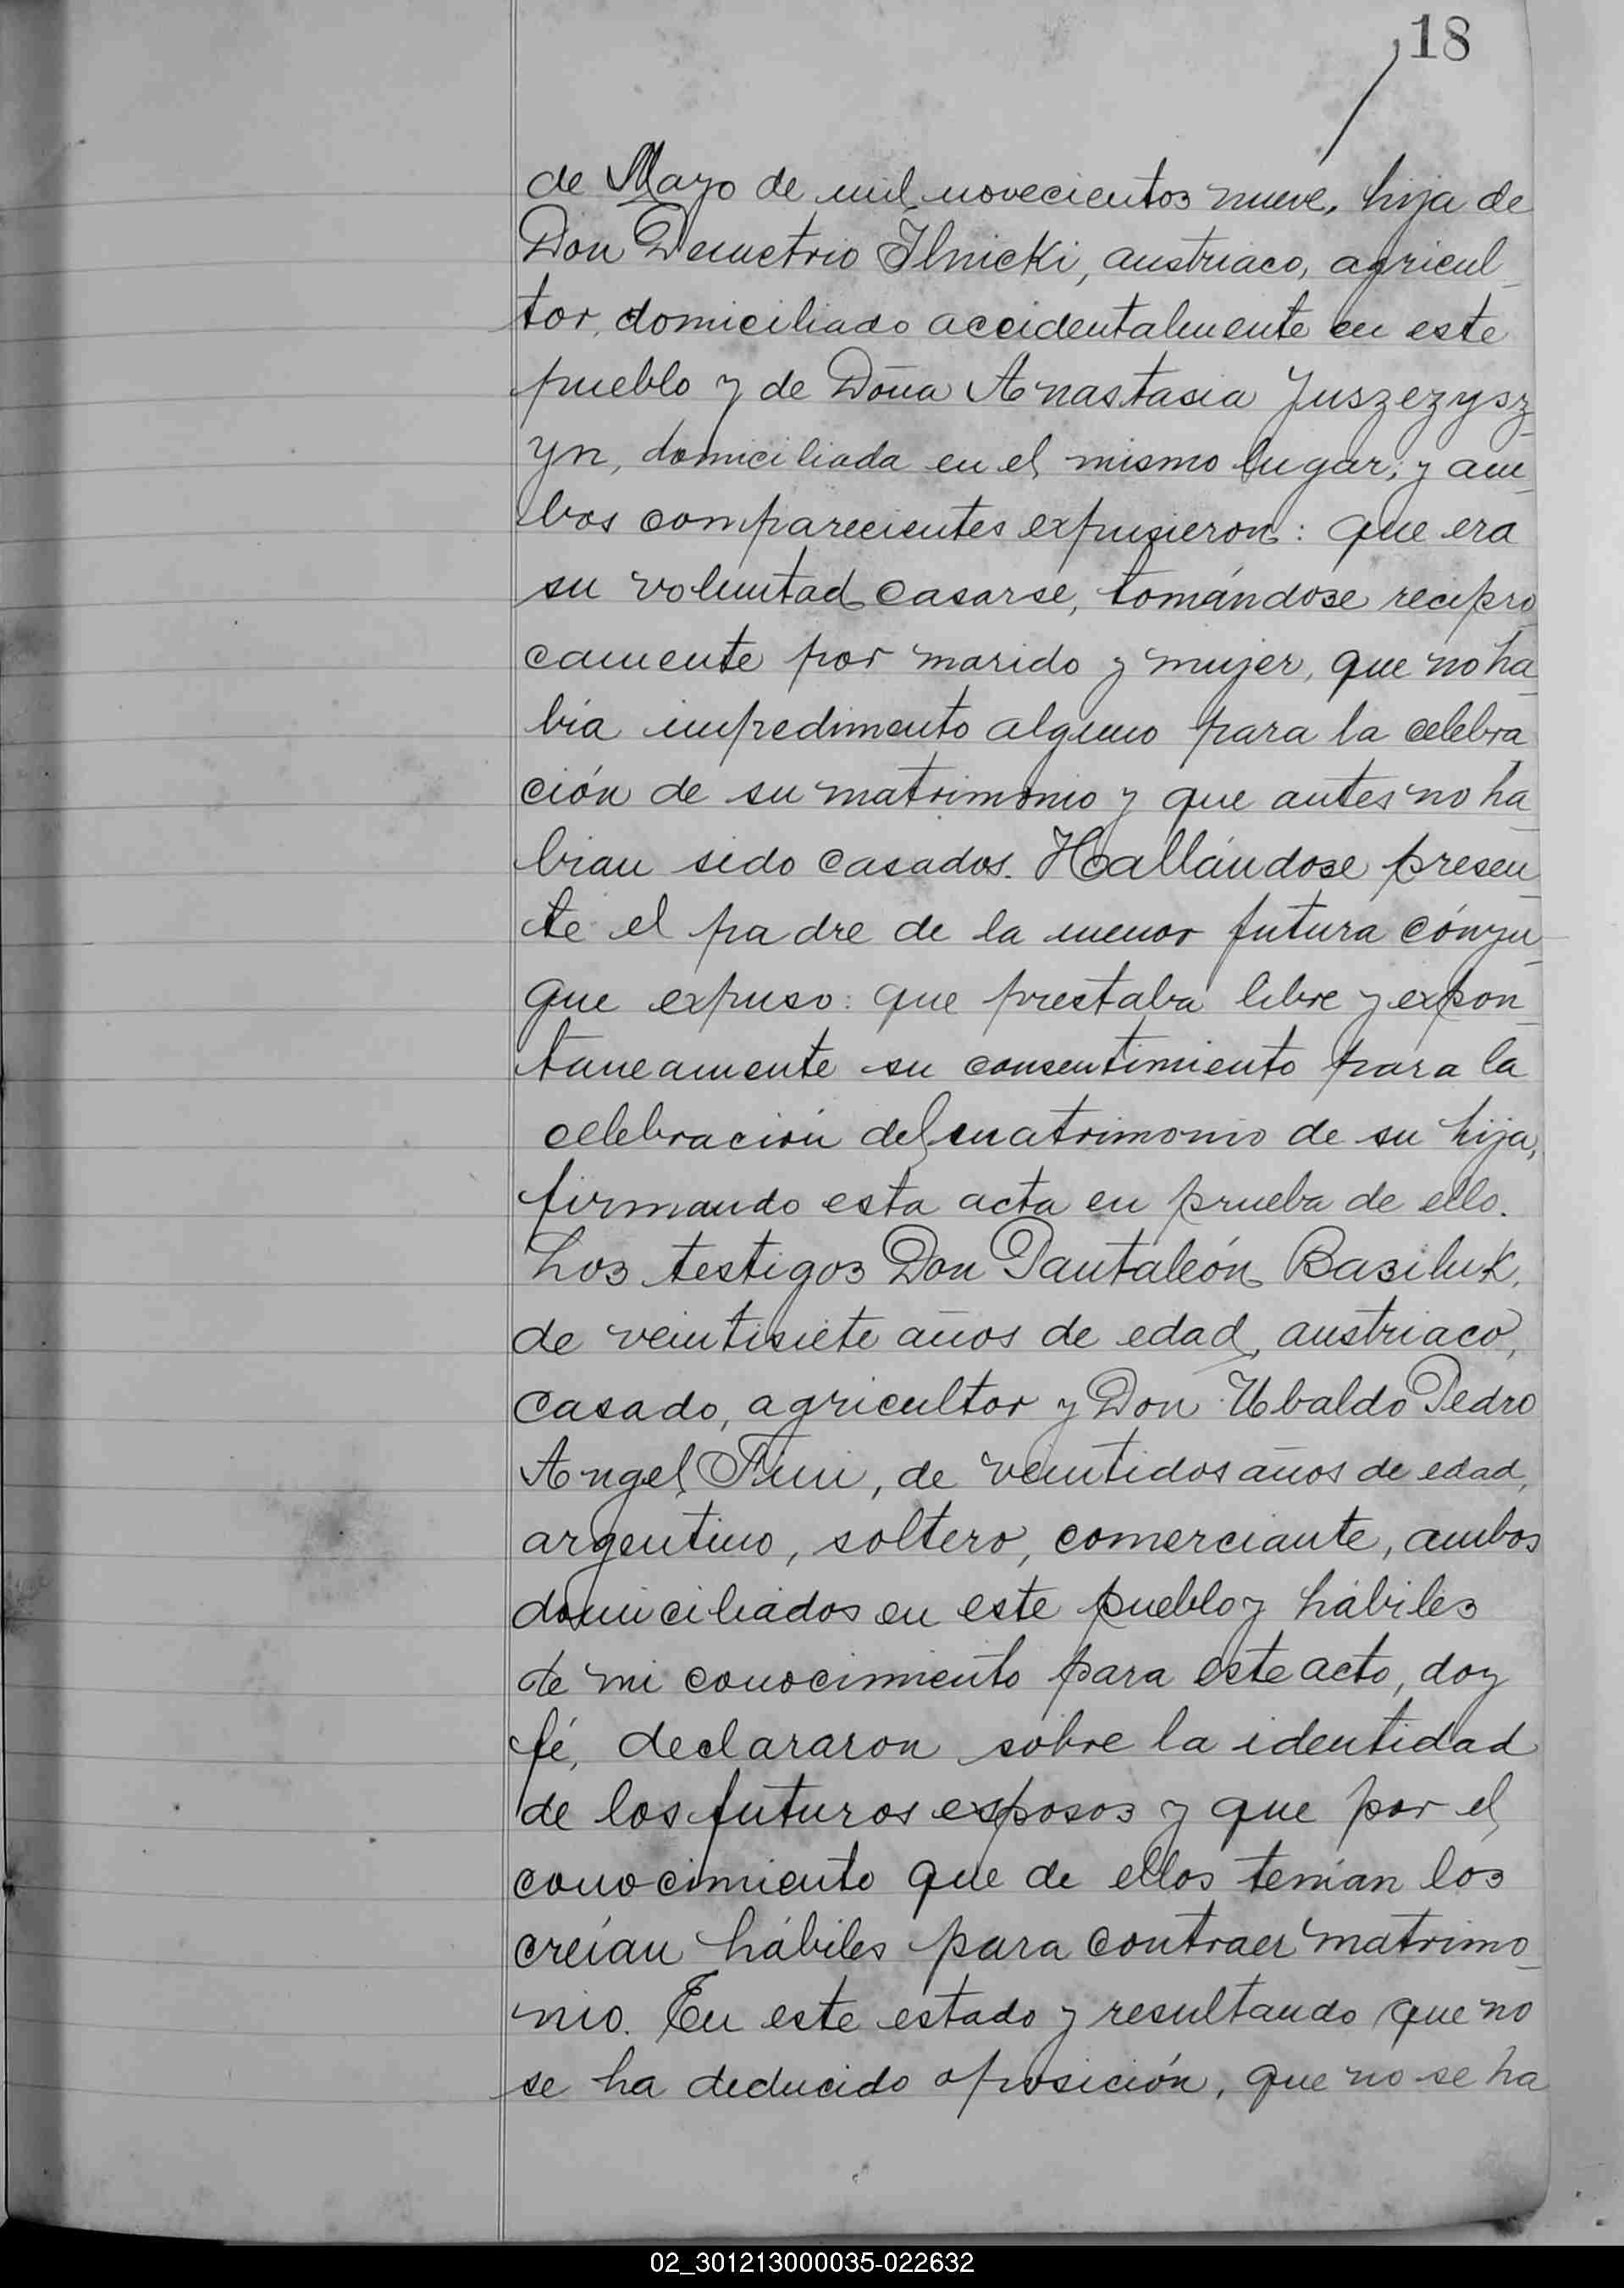 18
de Mayo de mil novecientos nueve, hija de
Don Demetrio Ilnicki, austriaco, agricul-
tor, domiciliado accidentalmente en este
pueblo y de Doña Anastasia Juszezysz-
yn, domiciliada en el mismo lugar; y am-
bos comparecientes expusieron: que era
su voluntad casarse, tomándose recipro
camente por marido y mujer, que no ha-
bía impedimento alguno para la celebra
ción de su matrimonio y que antes no ha-
bian sido casados. Hallándose presen-
te el padre de la menor futura cónyu-
gue expuso: que prestaba libre y expon-
taneamente su consentimiento para la
celebración del matrimonio de su hija,
firmando esta acta en prueba de ello.
Los testigos Don Pantaleón Basiluk,
de veintisiete años de edad, austriaco,
casado, agricultor y Don Ubaldo Pedro
Angel, de veintidos años de edad,
argentino, soltero, comerciante, ambos
domiciliados en este pueblo y hábiles
de mi conocimiento para este acto, doy
fé, declararon sobre la identidad
de los futuros esposos y que por el
conocimiento que de ellos tenían los
creían hábiles para contraer matrimo-
nio. En este estado y resultando que no
se ha deducido oposición, que no se ha
02_301213000035-022632